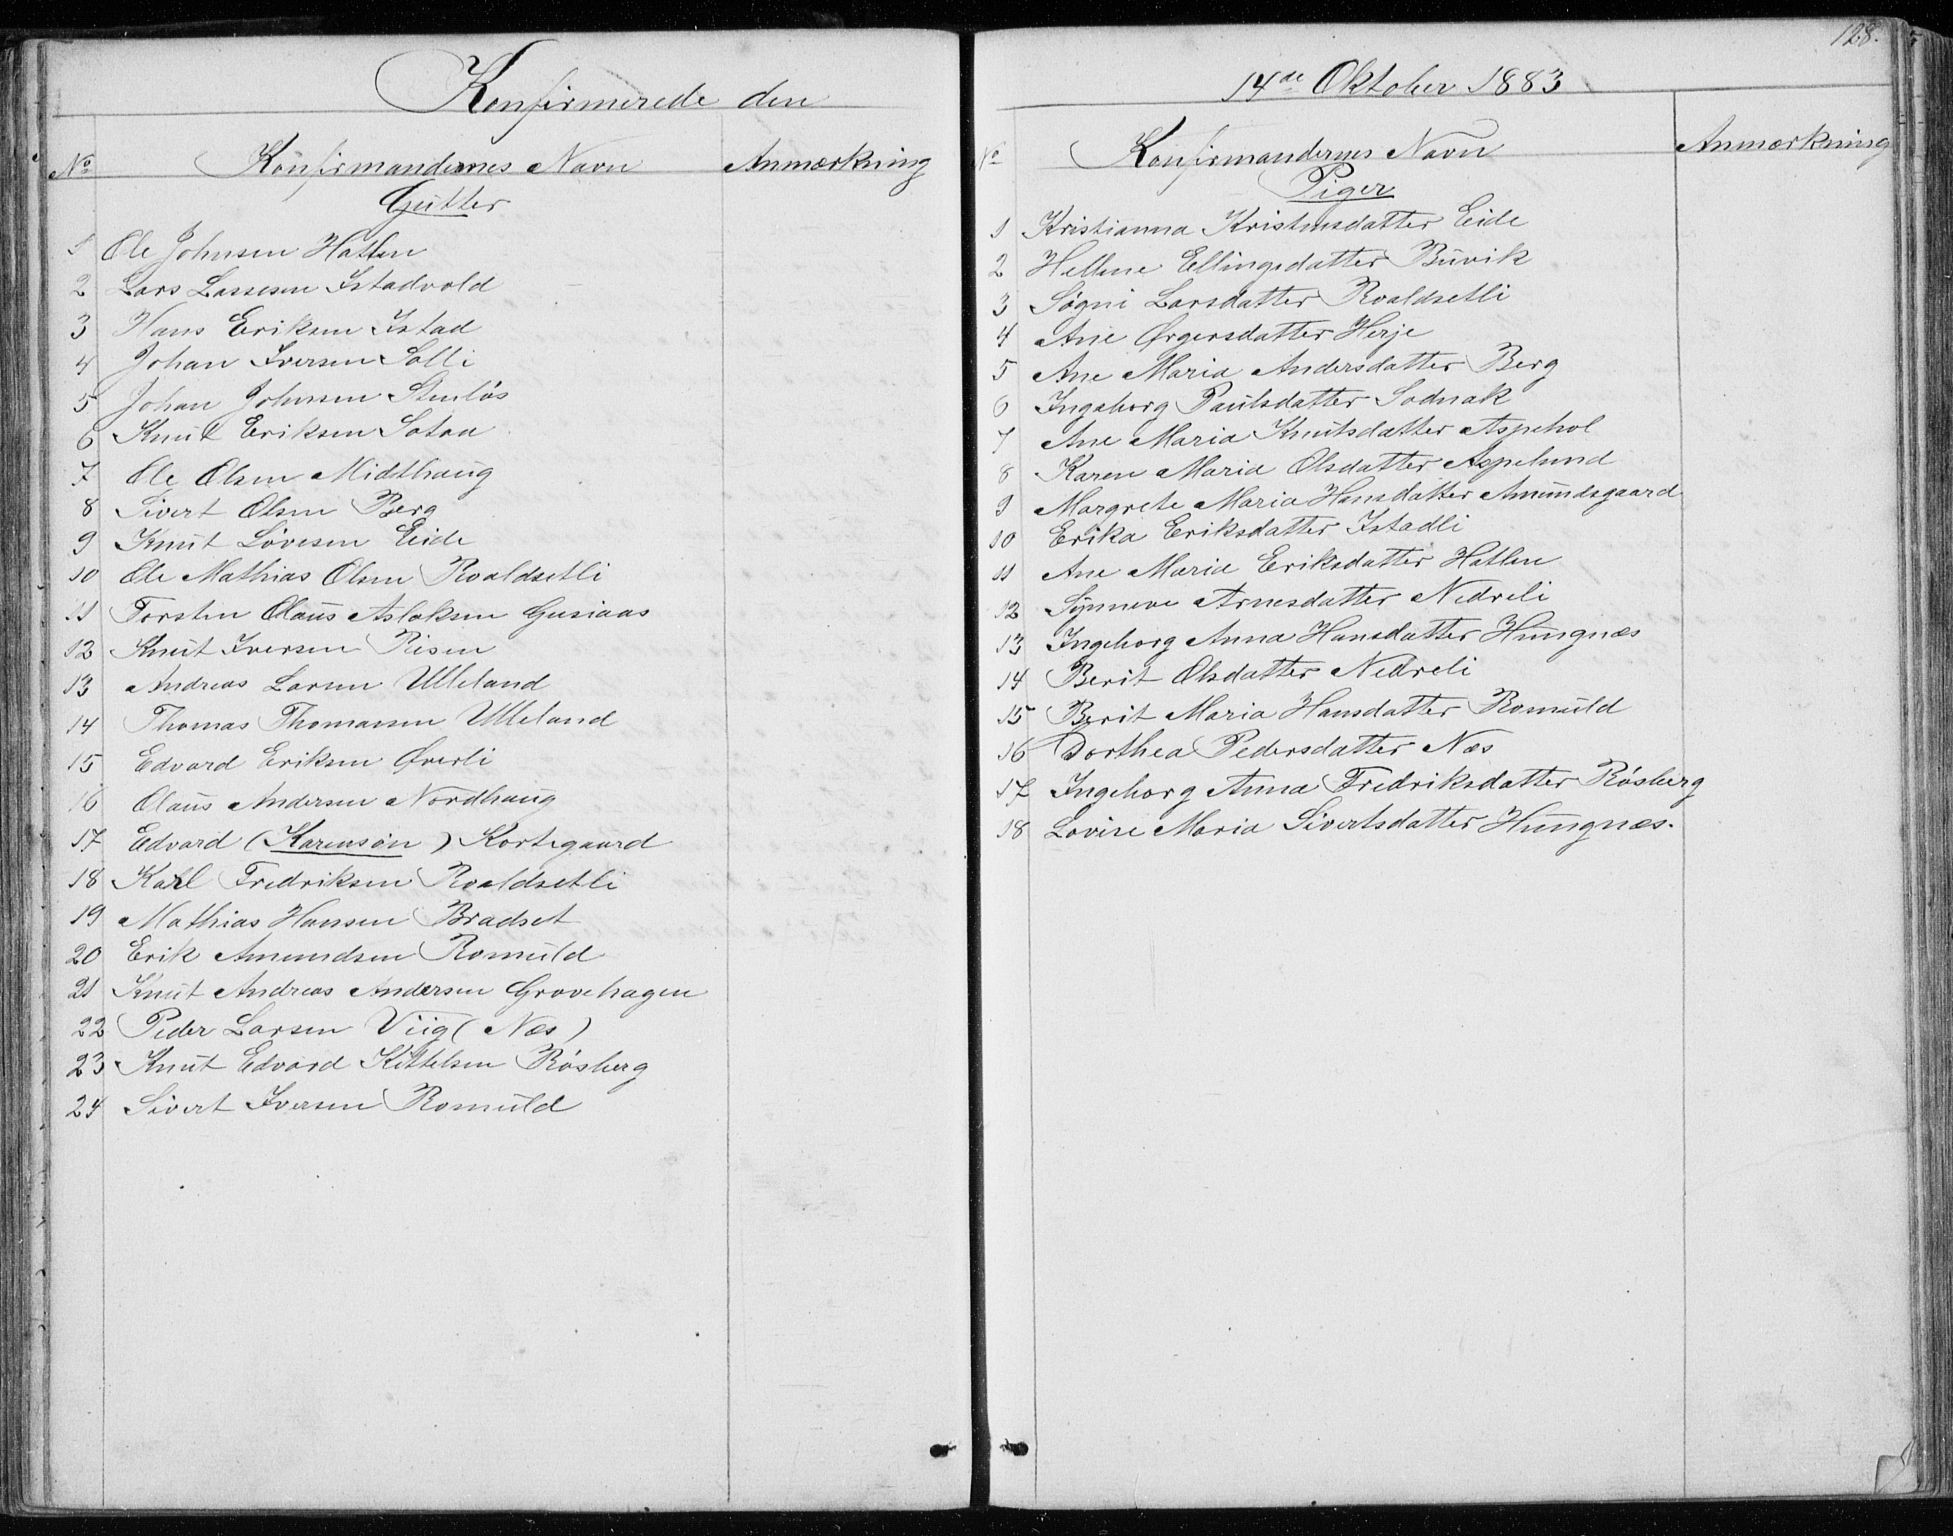 Konfirmerede den
No Konfirmandernes Navn Anmærkning
Gutter
1 Ole Johnsen Hatlen
2 Lars Lassesen Istadvold
3 Hans Eriksen Istad
4 Johan Iversen Solli
5 Johan Johnsen Stenløs
6 Knut Eriksen Sotaa
7 Ole Olsen Midthaug
8 Sivert Olsen Berg
9 Knut Løvesen Eide
10 Ole Mathias Olsen Roaldsetli
11 Torsten Olaus Aslaksen Gusiaas
12 Knut Iversen Risen
13 Andreas Larsen Ulleland
14 Thomas Thomassen Ulleland
15 Edvard Eriksen Øverli
16 Olaus Andersen Nordhaug
17 Edvard (Karensøn) Kortegaard
18 Karl Fredriksen Roaldsetli
19 Mathias Hansen Bradset
20 Erik Amundsen Romuld
21 Knut Andreas Andersen Grovehagen
22 Peder Larsen Viig (Næs)
23 Knut Edvard Kittelsen Røsberg
24 Sivert Iversen Romuld
128.
14de Oktober 1883
No Konfirmandernes Navn Anmærkning
Piger
1 Kristianna Kristensdatter Eide
2 Hellene Ellingsdatter Buvik
3 Søgni Larsdatter Roaldsetli
4 Ane Ørgersdatter Herje
5 Ane Maria Andersdatter Berg
6 Ingeborg Paulsdatter Sodnak
7 Ane Maria Knutsdatter Aspehol
8 Karen Maria Olsdatter Aspelund
9 Margrete Maria Hansdatter Amundsgaard
10 Erika Eriksdatter Istadli
11 Ane Maria Eriksdatter Hatlen
12 Synneve Arnesdatter Nedreli
13 Ingeborg Anna Hansdatter Hungnæs
14 Berit Olsdatter Nedreli
15 Berit Maria Hansdatter Romuld
16 Dorthea Pedersdatter Næs
17 Ingeborg Anna Fredriksdatter Røsberg
18 Lovise Maria Sivertsdatter Hungnæs.